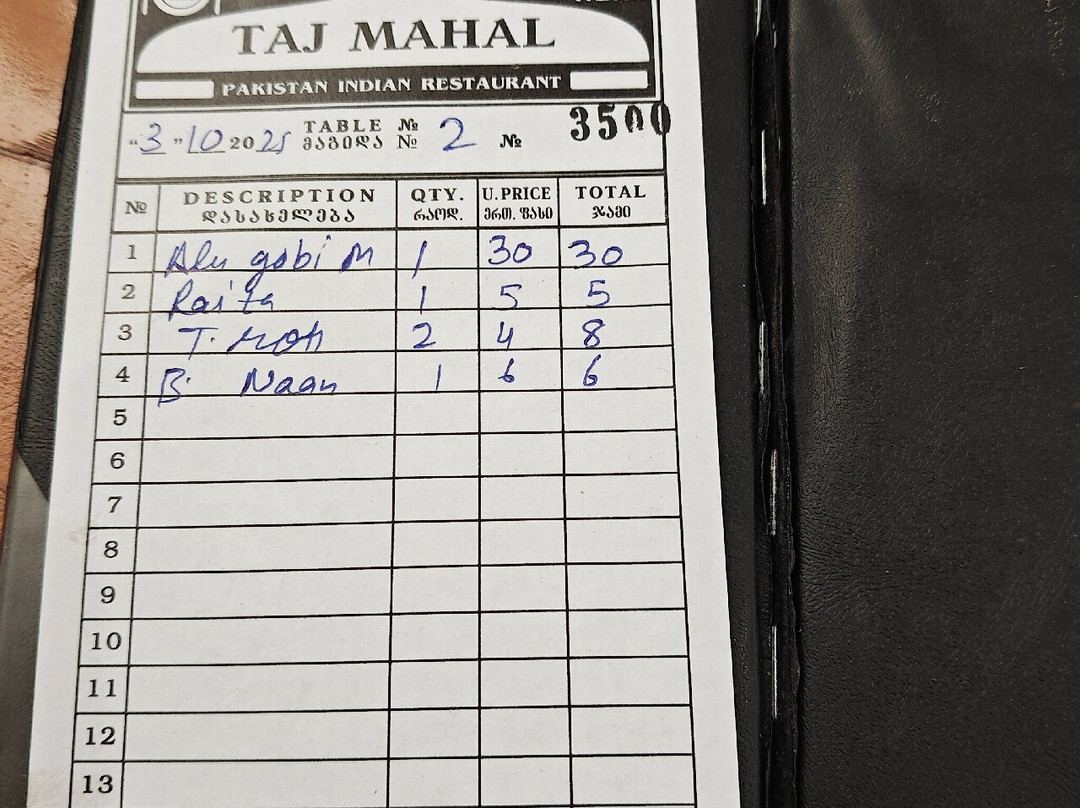 TAJ MAHAL
PAKISTAN INDIAN RESTAURANT
"3" 10 2025 TABLE № 2 № 3500
ᲛᲐᲒᲘᲓᲐ №
№ DESCRIPTION QTY. U.PRICE TOTAL
ᲓᲐᲡᲐᲮᲔᲚᲔᲑᲐ ᲠᲐᲝᲓ. ᲔᲠᲗ. ᲤᲐᲡᲘ ᲯᲐᲛᲘ
1 Alu gobi M 1 30 30
2 Raita 1 5 5
3 T. Roti 2 4 8
4 B. Naan 1 6 6
5
6
7
8
9
10
11
12
13